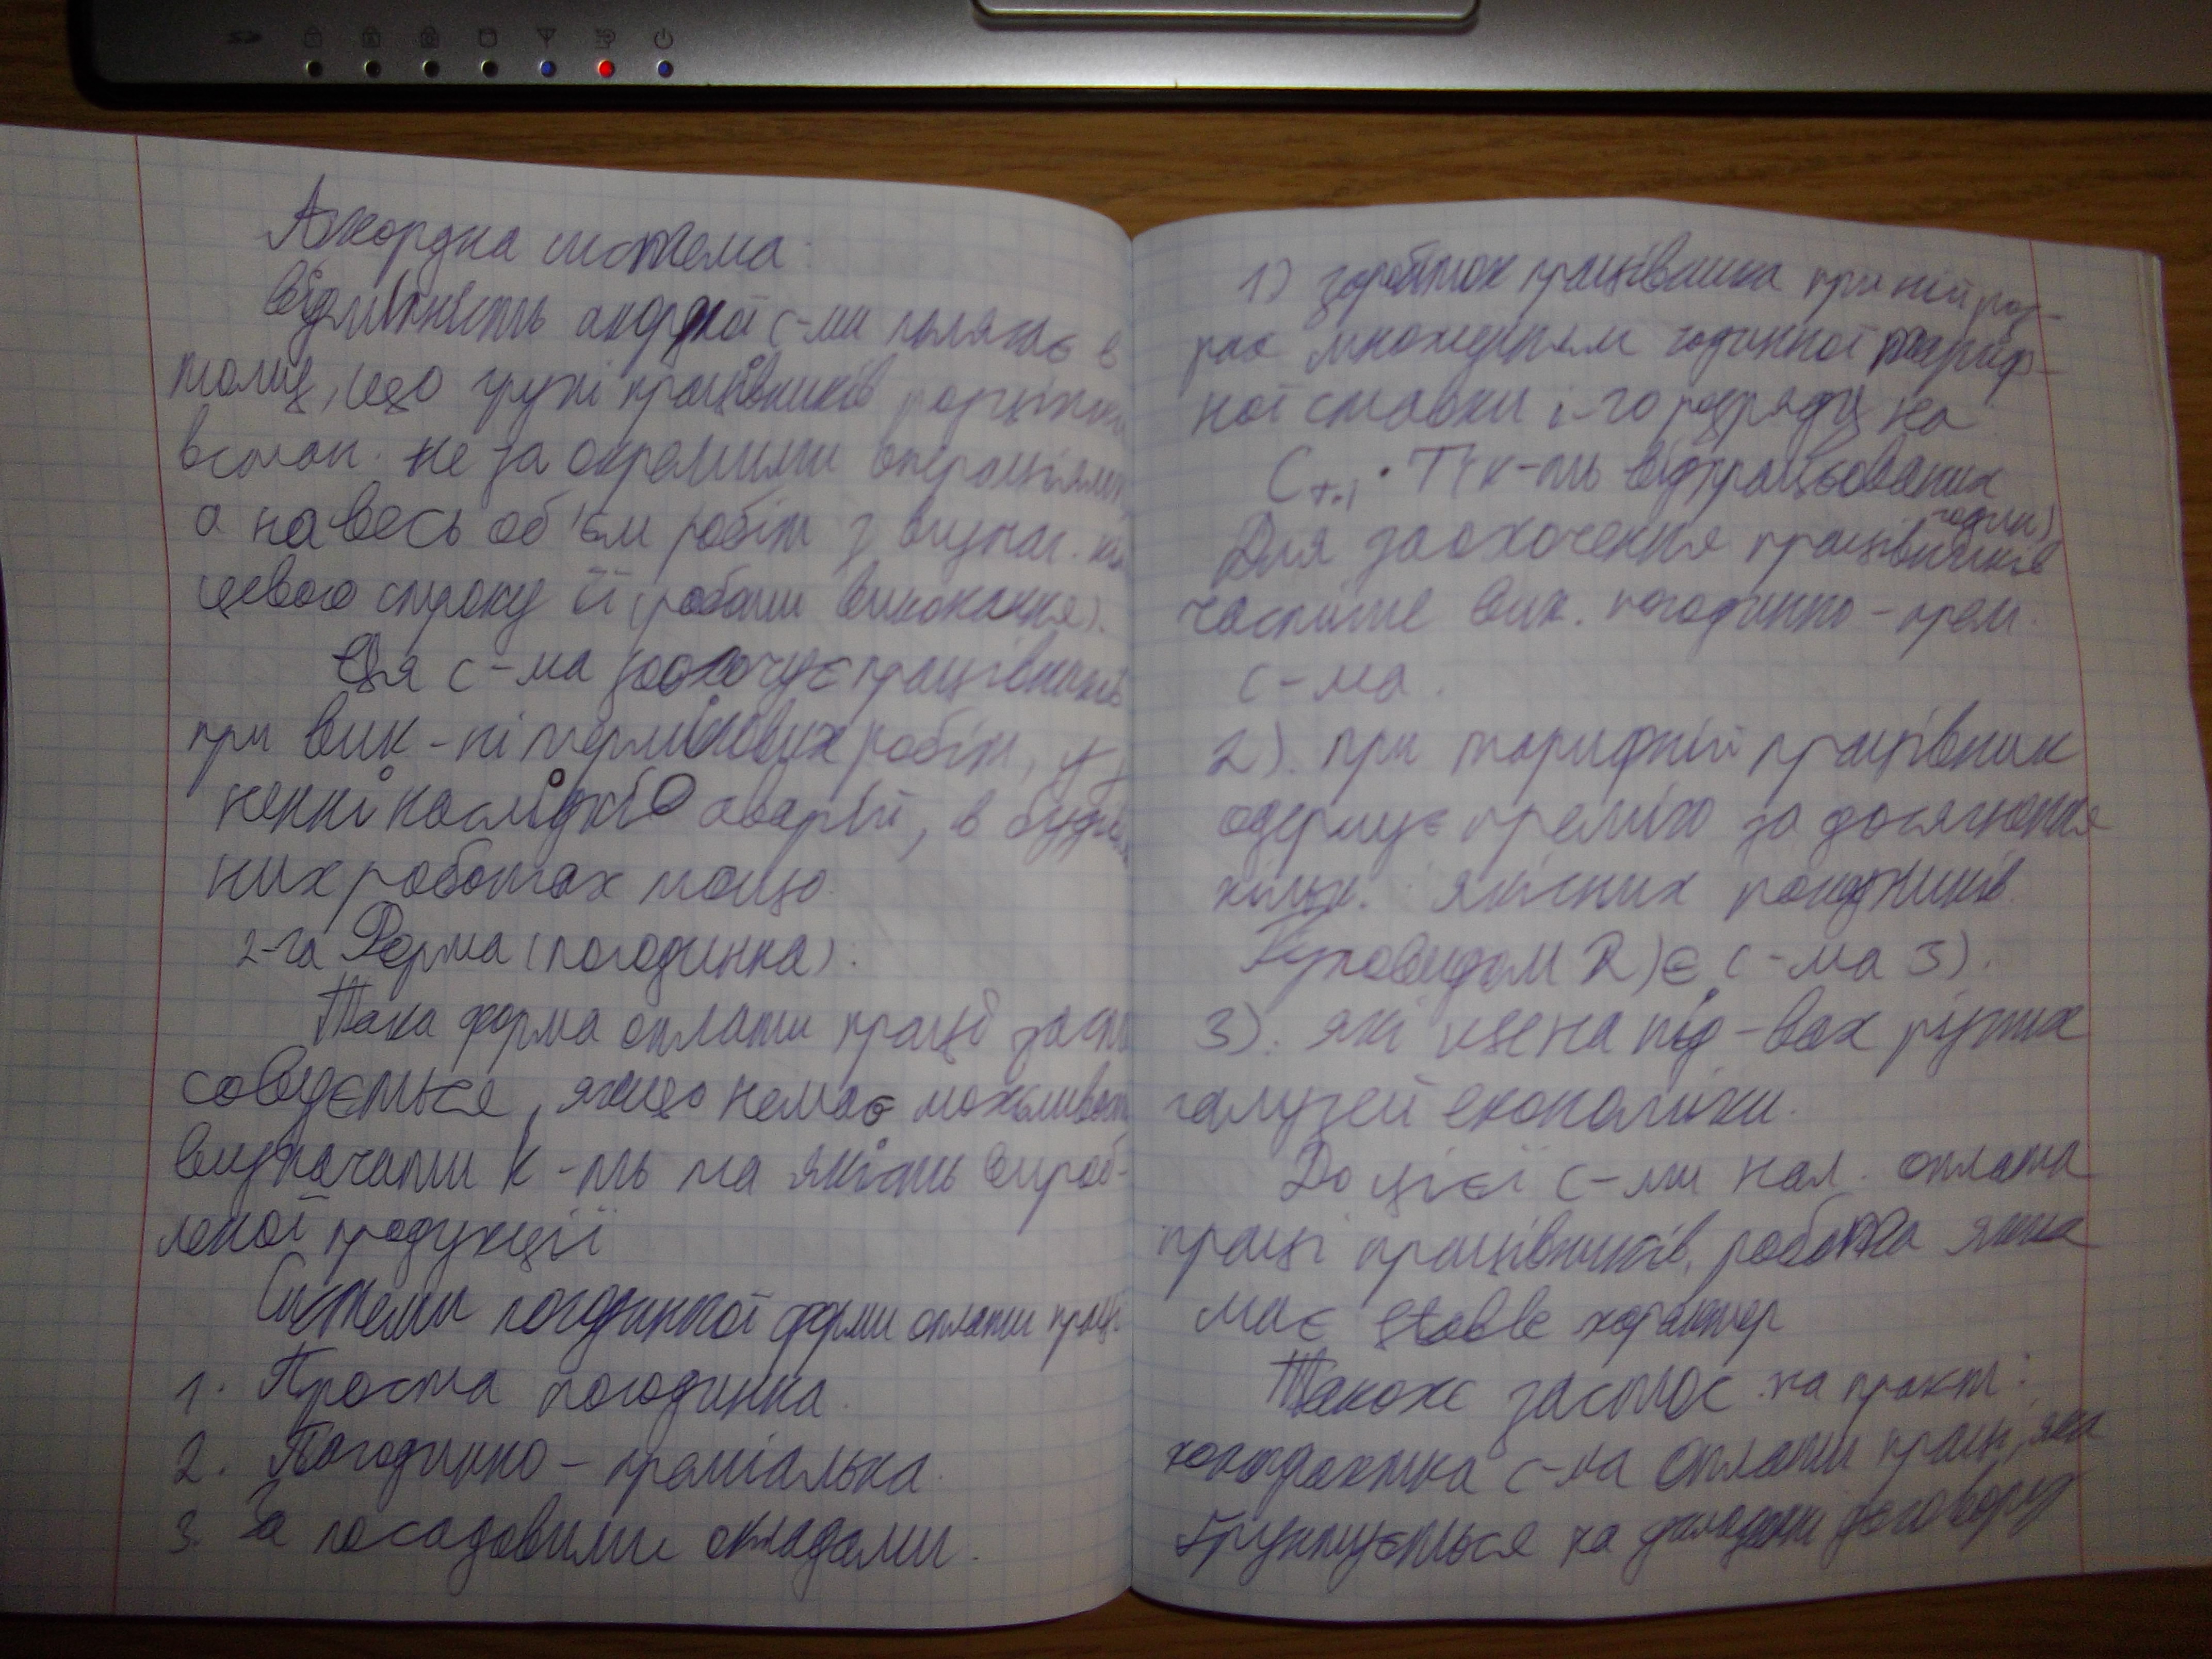 Акордна система:
Відмінність акордної с-ми полягає в
тому, що групі працівників розцінки
встан. не за окремими операціями,
а на весь об'єм робіт з визнач. кін
цевого строку її (роботи виконання).
Ця с-ма заохочує працівників
при вик-ні термінових робіт,
ненні наслідків аварій, в будів
них роботах тощо.
2-га Форма (погодинна):
Така форма оплати праці засто
совується, якщо немає можливост
визначати к-ть та якість вироб-
леної продукції
Системи погодинної форми оплати праці.
1. Проста погодинна.
2. Погодинно-преміальна.
3. За посадовими окладами.
1) заробіток працівника при ній роз-
рах множенням годинної тариф-
ної ставки і-го розряду на
Ст.і · Т(к-ть відпрацьованих
годин)
Для заохочення працівників
частіше вик. погодинно-прем.
с-ма.
2). при тарифній працівник
одержує премію за досягнення
кільк. якісних показників.
Різновидом 2) є с-ма 3).
3). які ще на під-вах різних
галузей економіки.
До цієї с-ми нал. оплата
праці працівників, робота яких
має stable характер
Також застос на практ.
контрактна с-ма оплати праці, яка
ґрунтується на укладанні договору